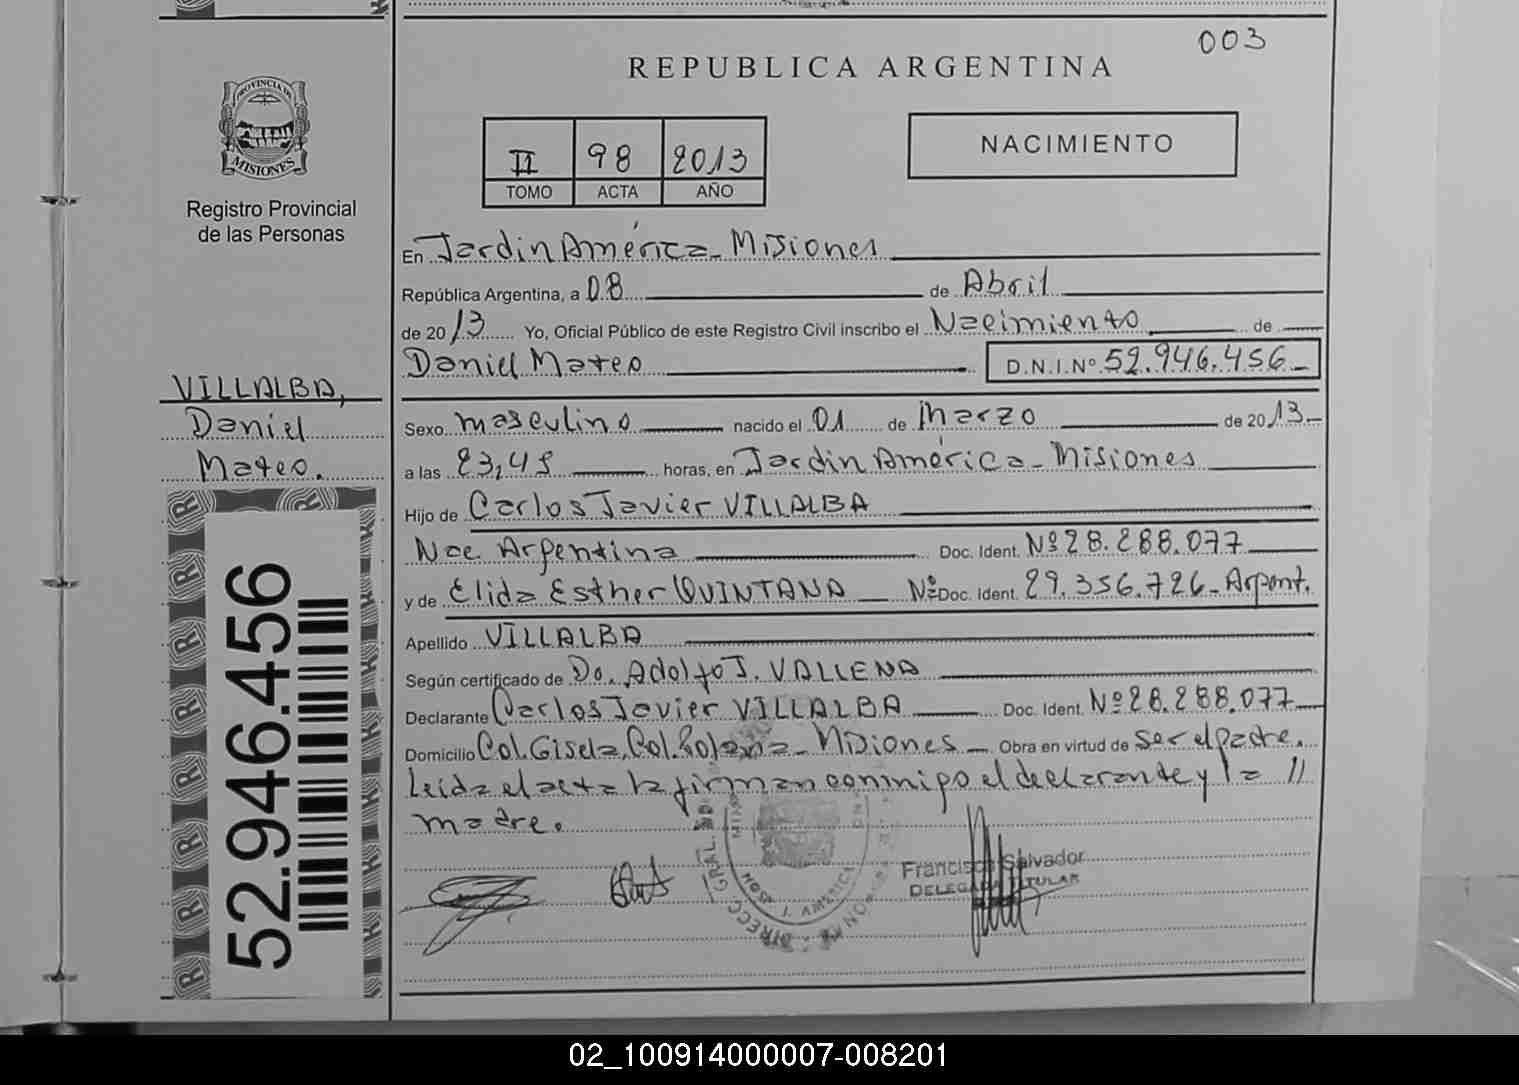 003
REPUBLICA ARGENTINA
PROVINCIA DE
MISIONES
Registro Provincial
de las Personas
II 98 2013
TOMO ACTA AÑO
NACIMIENTO
En Jardín América - Misiones
República Argentina, a 08 de Abril
de 2013 Yo, Oficial Público de este Registro Civil inscribo el Nacimiento de
Daniel Mateo D.N.I.Nº 52.946.456
VILLALBA,
Daniel
Mateo.
Sexo masculino nacido el 01 de Marzo de 2013
a las 23,45 horas, en Jardín América - Misiones
Hijo de Carlos Javier VILLALBA
Nac. Argentina Doc. Ident. Nº 28.288.077
y de Elida Esther QUINTANA Nº Doc. Ident. 29.356.726 - Argent.
Apellido VILLALBA
Según certificado de Dr. Adolfo J. VALLENA
Declarante Carlos Javier VILLALBA Doc. Ident. Nº 28.288.077
Domicilio Col. Gisela, Col. - Misiones - Obra en virtud de ser el padre.
Leída el acta la firman conmigo el declarante y la //
madre.
52.946.456
Francisca Salvador
DELEGADA TITULAR
02_100914000007-008201